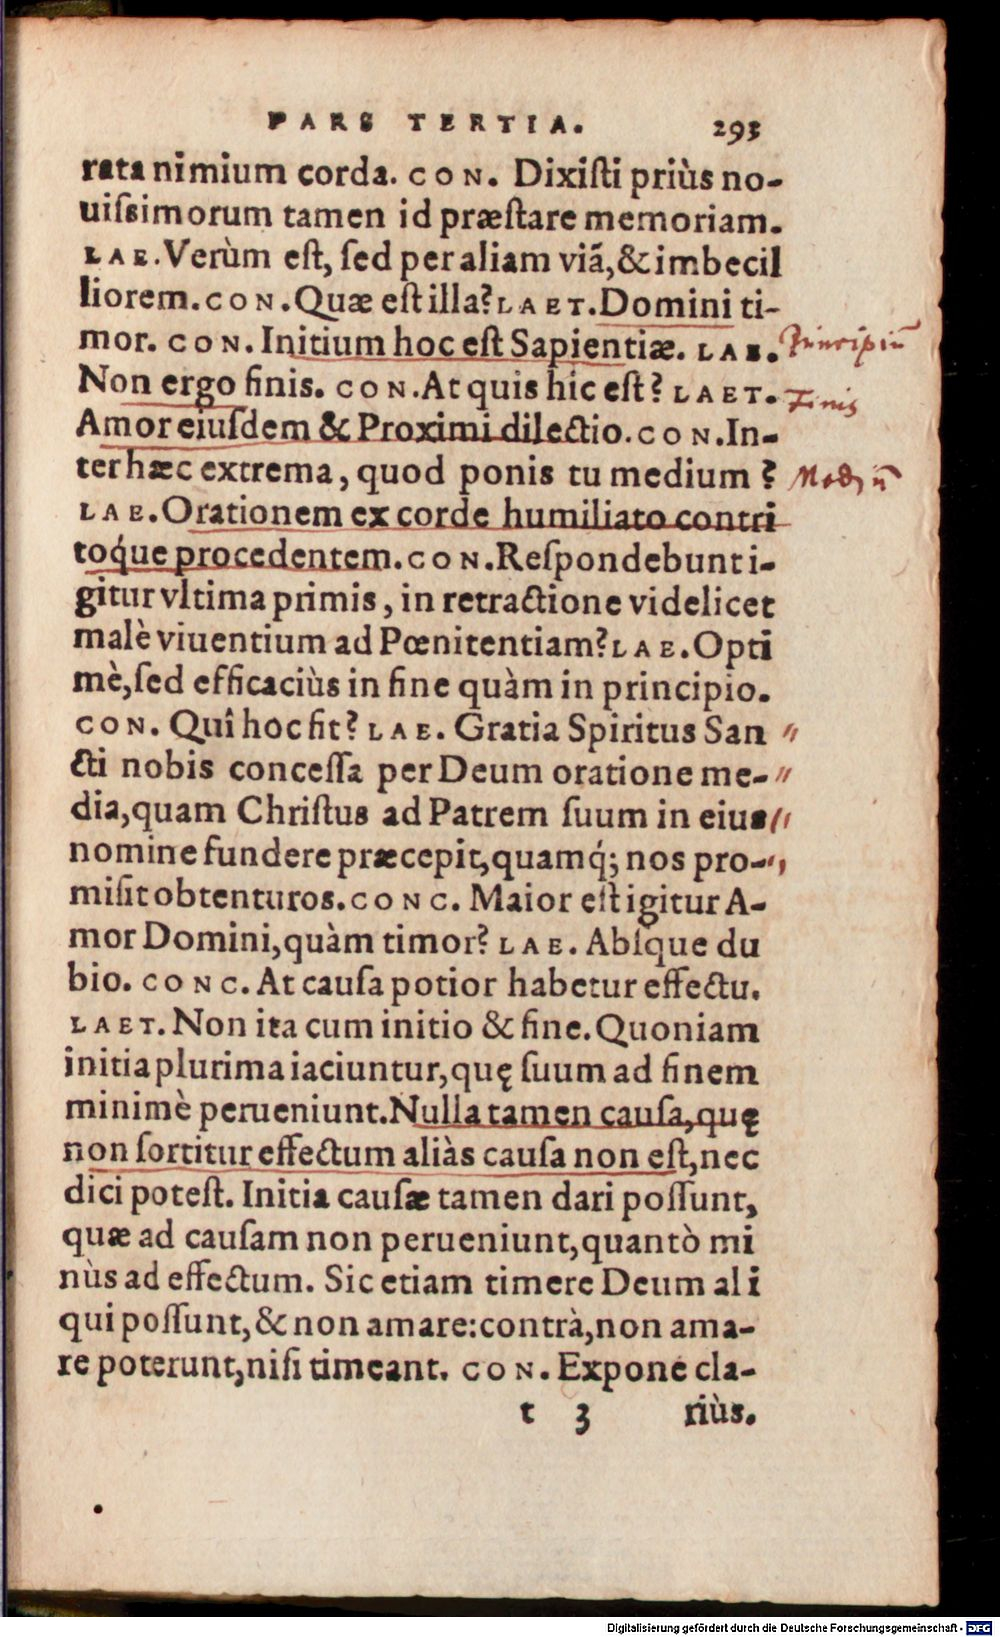 PARS TERTIA. 293
rata nimium corda. CON. Dixiſti priùs no-
uiſsimorum tamen id præſtare memoriam.
LAE. Verùm eſt, ſed per aliam viã, & imbecil
liorem. CON. Quæ eſt illa? LAET. Domini ti-
mor. CON. Initium hoc eſt Sapientiæ. LAE. Principiũ
Non ergo finis. CON. At quis hic eſt? LAET. Finis
Amor eiuſdem & Proximi dilectio. CON. In-
ter hæc extrema, quod ponis tu medium? Mediũ
LAE. Orationem ex corde humiliato contri
toq́ue procedentem. CON. Reſpondebunt i-
gitur vltima primis, in retractione videlicet
malè viuentium ad Pœnitentiam? LAE. Opti
mè, ſed efficaciùs in fine quàm in principio.
CON. Quî hoc fit? LAE. Gratia Spiritus San "
cti nobis conceſſa per Deum oratione me- "
dia, quam Chriſtus ad Patrem ſuum in eius "
nomine fundere præcepit, quamq́; nos pro- "
miſit obtenturos. CONC. Maior eſt igitur A-
mor Domini, quàm timor? LAE. Abſque du
bio. CONC. At cauſa potior habetur effectu.
LAET. Non ita cum initio & fine. Quoniam
initia plurima iaciuntur, quę ſuum ad finem
minimè perueniunt. Nulla tamen cauſa, quę
non ſortitur effectum aliàs cauſa non eſt, nec
dici poteſt. Initia cauſæ tamen dari poſſunt,
quæ ad cauſam non perueniunt, quantò mi
nùs ad effectum. Sic etiam timere Deum ali
qui poſſunt, & non amare: contrà, non ama-
re poterunt, niſi timeant. CON. Expone cla-
t 3 riùs.
Digitalisierung gefördert durch die Deutsche Forschungsgemeinschaft - DFG